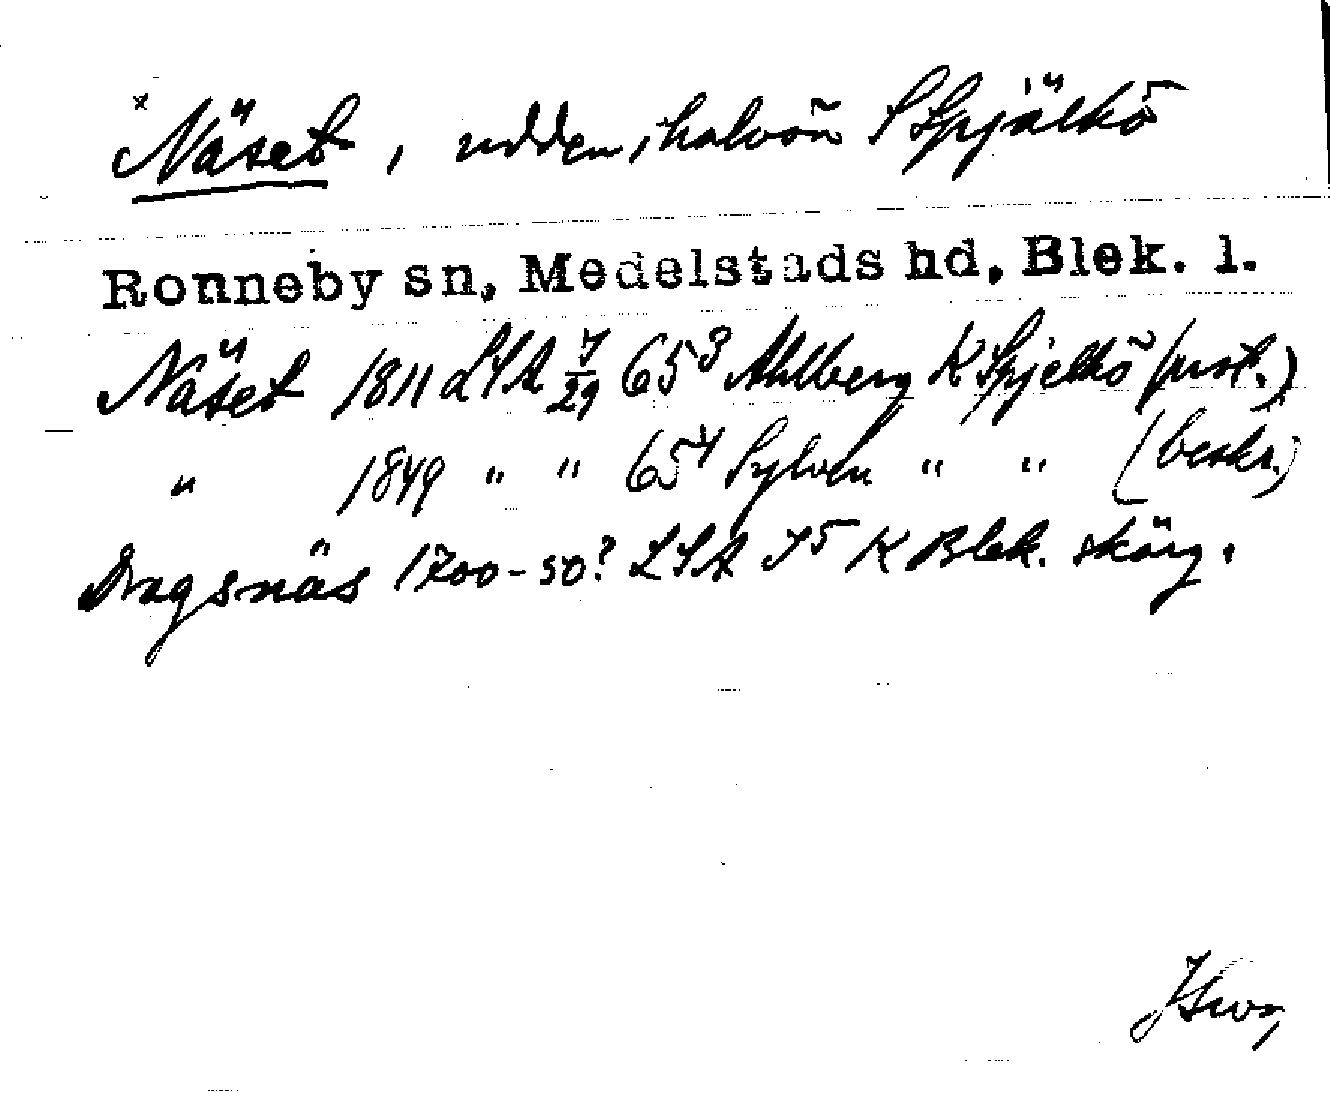 x Näset, udden, halvön S Spjälkö
Ronneby sn, Medelstads hd, Blek. l.
Näset 1811 LSA 7/29 65³ Ahlberg K Spjelkö (prot.)
" 1849 " " 65⁴ Sylvén " " (beskr.)
Dragsnäs 1700-50? LSA S⁵ K Blek. skärg.